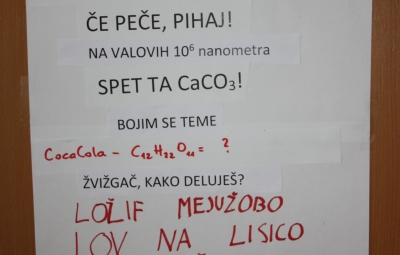 ČE PEČE, PIHAJ!
NA VALOVIH 10⁶ nanometra
SPET TA CaCO₃!
BOJIM SE TEME
CocaCola – C₁₂H₂₂O₁₁ = ?
ŽVIŽGAČ, KAKO DELUJEŠ?
LOŽIF MEJUŽOBO
LOV NA LISICO